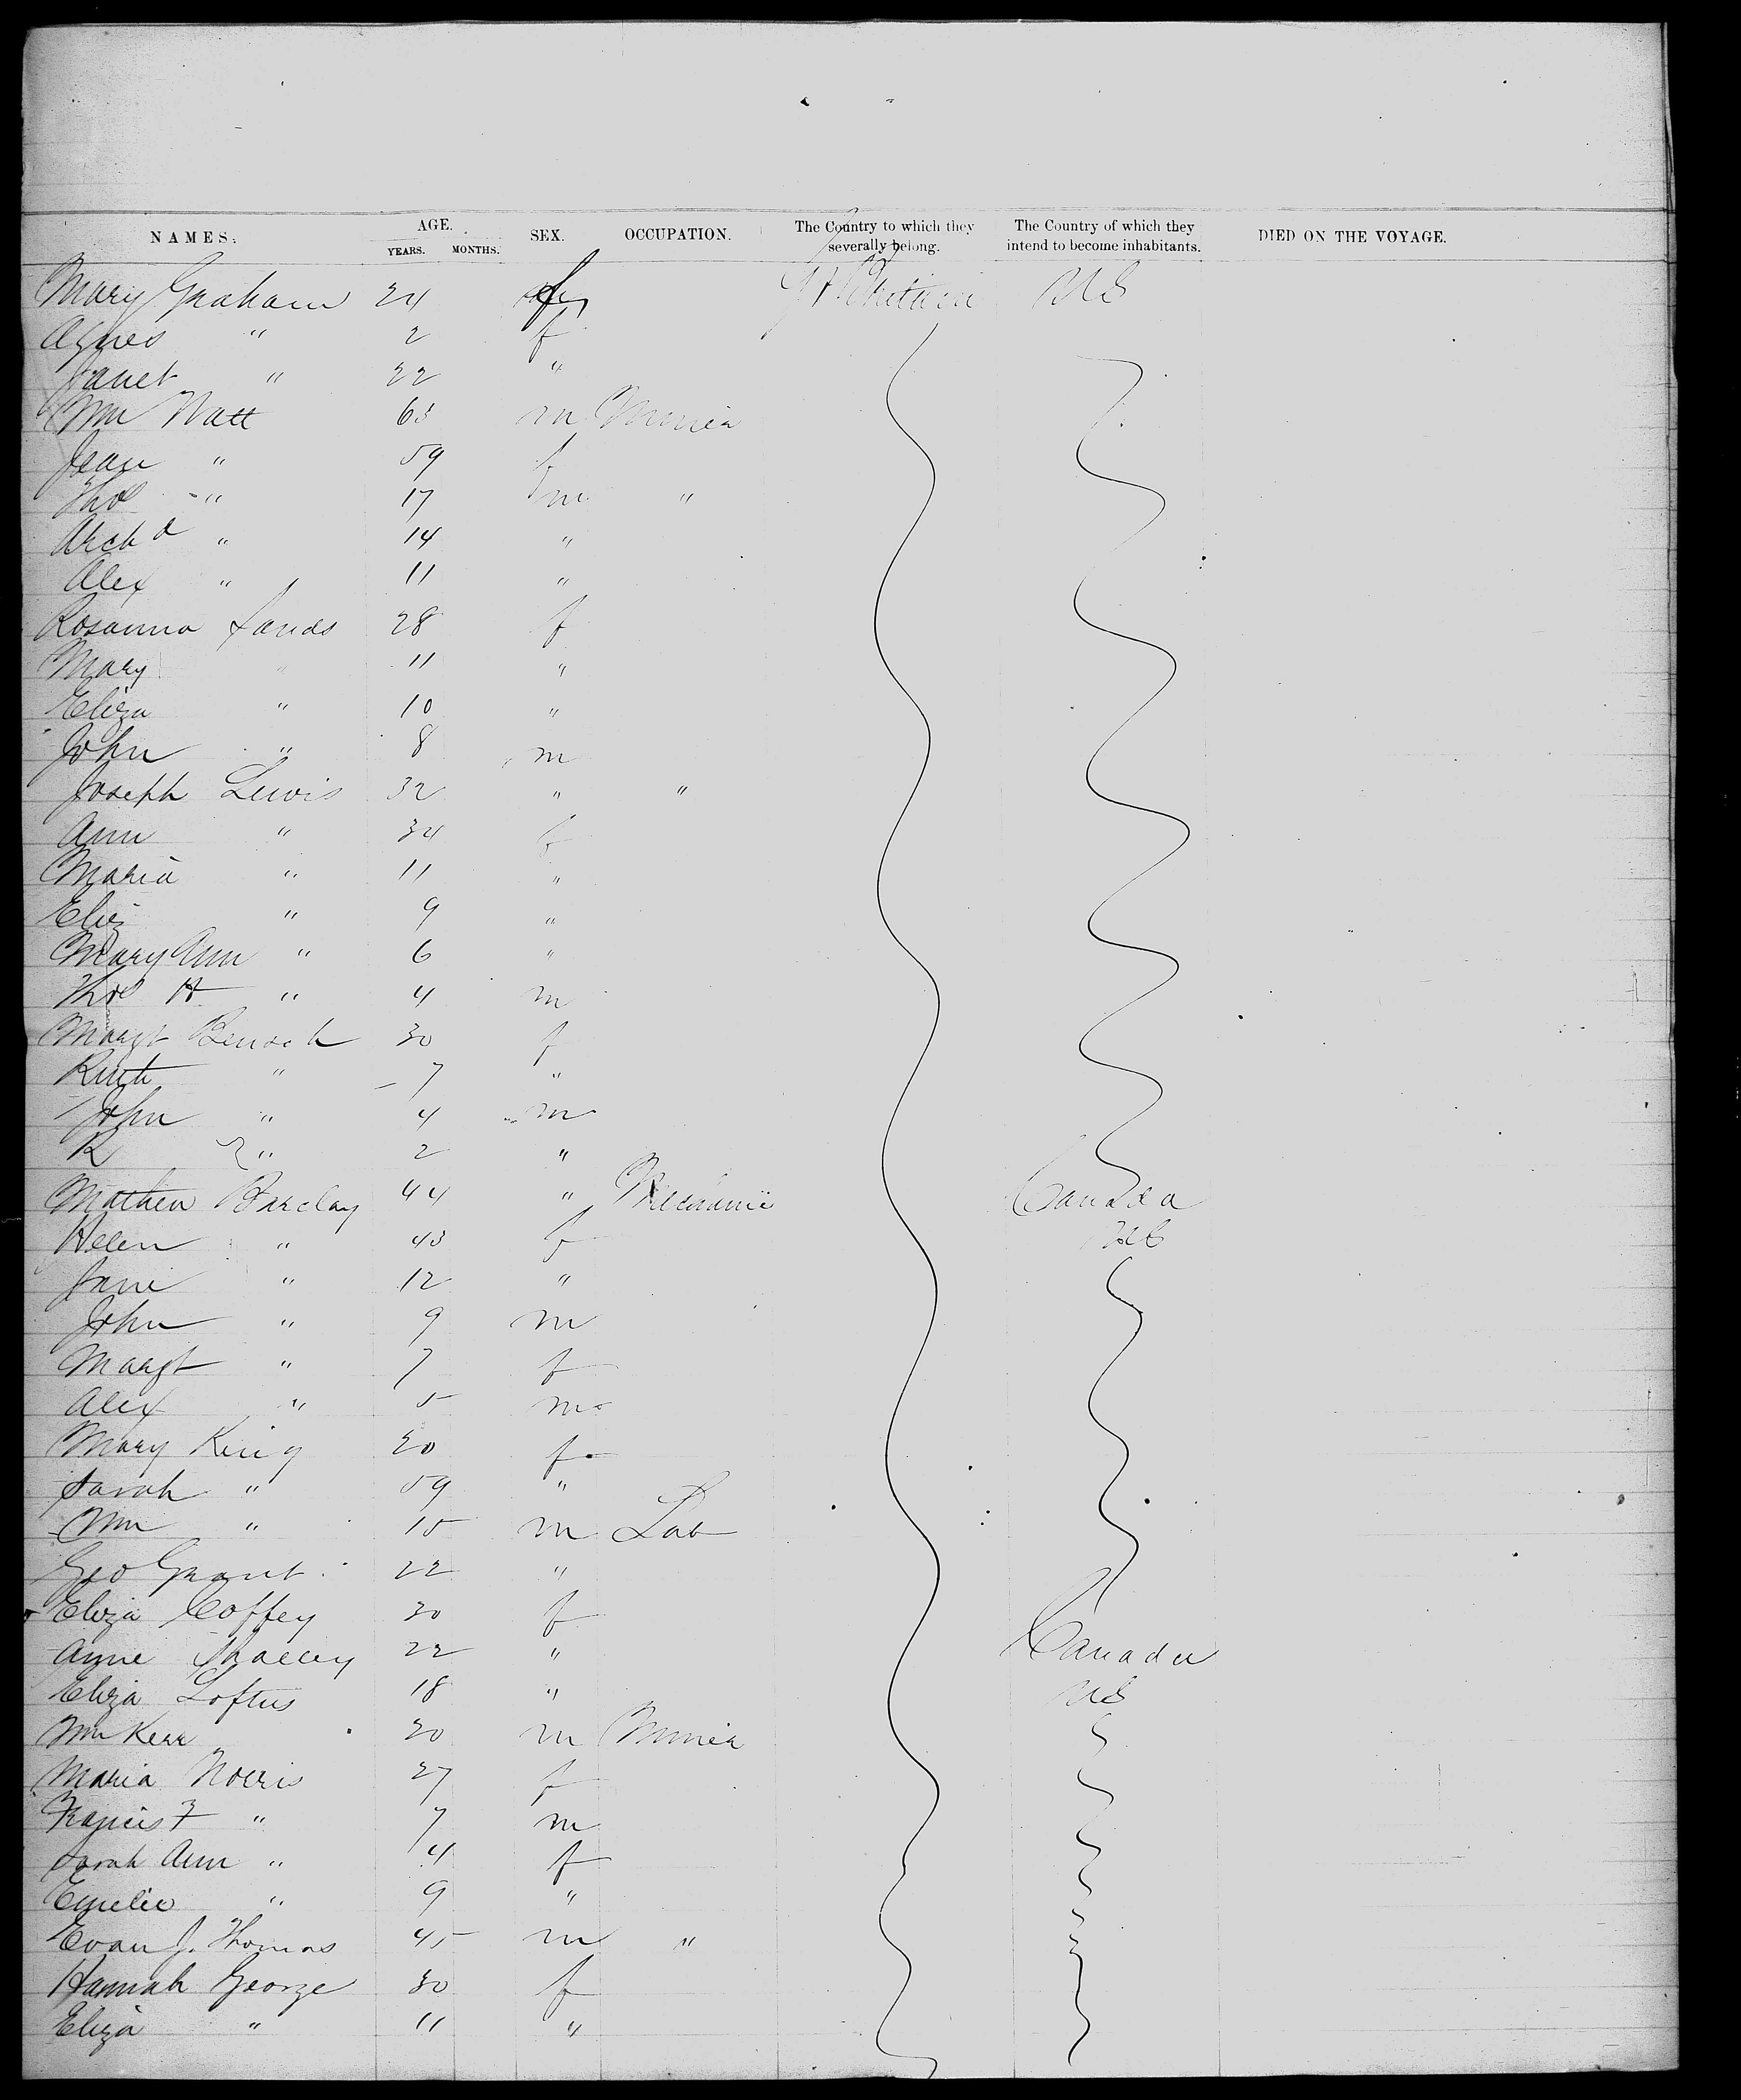 NAMES. AGE. YEARS. MONTHS. SEX. OCCUPATION. The Country to which they severally belong. The Country of which they intend to become inhabitants. DIED ON THE VOYAGE.
Mary Graham 24 f Gt Britain US
Agnes " 2 f
Janet " 22 "
Wm Watt 63 m Miner
Jean " 59 f
Thos " 17 m "
Archd " 14 "
Alex " 11 "
Rosanna Sands 28 f
Mary " 11 "
Eliza " 10 "
John " 8 m
Joseph Lewis 32 " "
Ann " 34 f
Maria " 11 "
Eliz " 9 "
Mary Ann " 6 "
Thos H " 4 m
Margt 30 f
Ruth " 7 "
John " 4 m
R " 2 "
Mathew Barclay 44 " Mechanic Canada
Helen " 43 f US
Jane " 12 "
John " 9 m
Margt " 7 f
Alex " 5 m
Mary King 20 f
Sarah " 59 "
Wm " 15 m Lab
Geo Grant 22 "
Eliza Coffey 30 f
Anne 22 " Canada
Eliza Loftus 18 " US
Wm Kerr 20 m Miner
Maria Norris 27 f
Francis F " 7 m
Sarah Ann " 4 f
Emelie " 9 "
Evan J. Thomas 45 m "
Hannah George 30 f
Eliza " 11 "